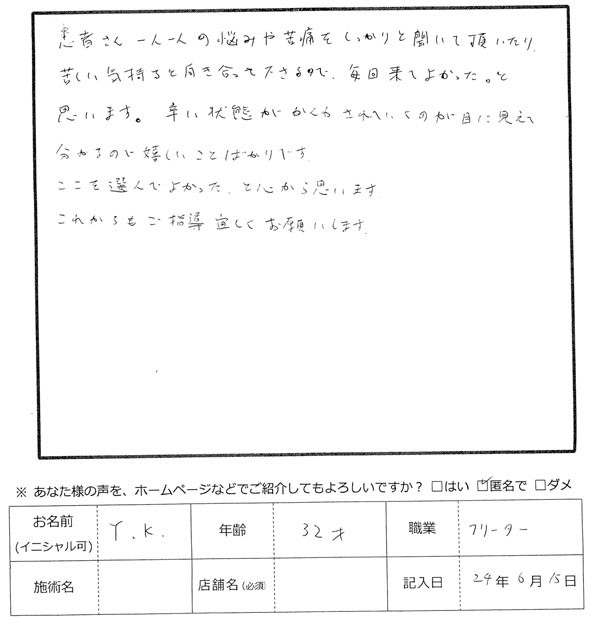 患者さん一人一人の悩みや苦痛をしっかりと聞いて頂いたり、
苦しい気持ちと向き合って下さるので、毎回来てよかった。と
思います。辛い状態がかくわされているのが目に見えて
分かるので嬉しいことばかりです。
ここを選んでよかった、と心から思います。
これからもご指導宜しくお願いします。
※ あなた様の声を、ホームページなどでご紹介してもよろしいですか？ □はい ☑匿名で □ダメ
お名前 (イニシャル可) Y.K. 年齢 32才 職業 フリーター
施術名 店舗名(必須) 記入日 24年6月15日